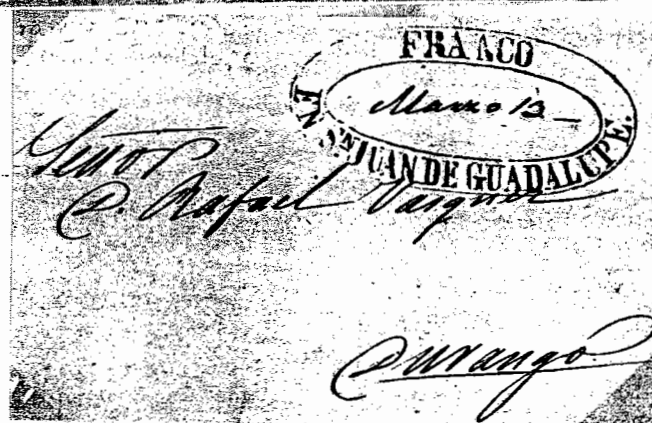 FRANCO
Marzo 13
EN Sn JUAN DE GUADALUPE.
Señor
D. Rafael Vasquez
Durango